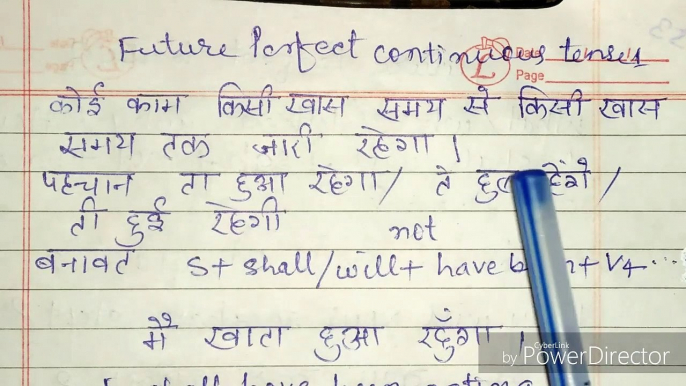 Future Perfect continuous tenses
Date
Page
कोई काम किसी खास समय से किसी खास
समय तक जारी रहेगा |
पहचान ता हुआ रहेगा / ते /
ती हुई रहेगी
not
बनावट S + shall/will + have + V4 ...
मै खाता हुआ रहूँगा |
CyberLink
by PowerDirector